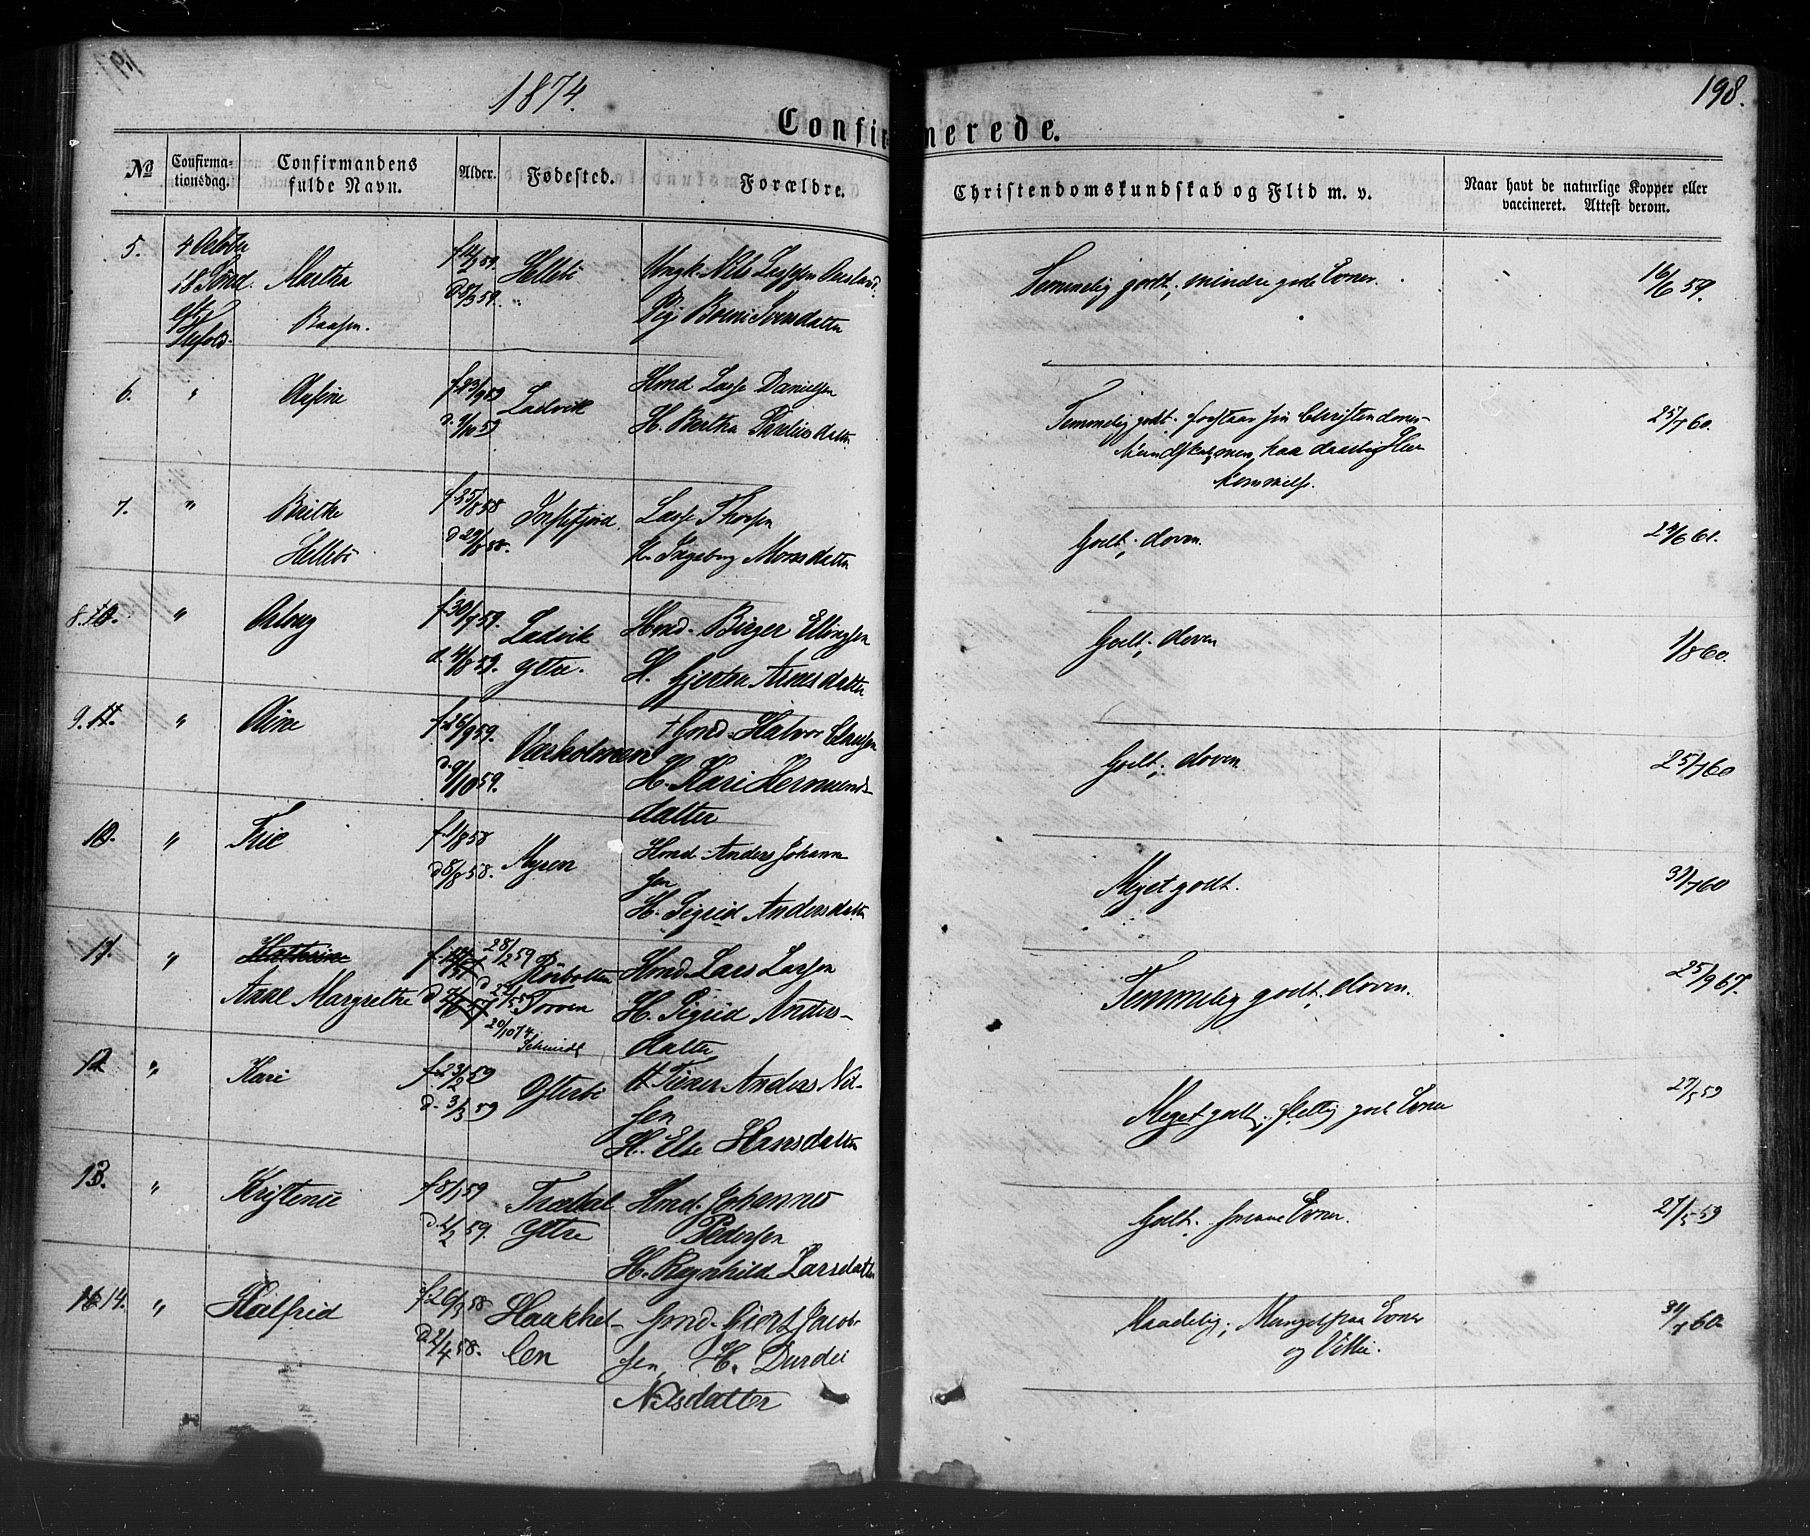 1874.
198.
Confirmerede.
No
Confirma-
tionsdag.
Confirmandens
fulde Navn.
Alder.
Fødested.
Forældre.
Christendomskundskab og Flid m. v.
Naar havt de naturlige Kopper eller
vaccineret. Attest derom.
5.
4 October
18 Sønd.
Martha
f 14/2 59.
d 8/3 59.
Hellebö
Ungk. Nils
Pige Svensdatter
Temmelig godt; mindre gode Evner.
16/6 59.
6.
"
f 23/9 59
Ladvik
Hmd. Lasse Danielsen
H. Bertha
Temmelig godt; forstaar sin Christendoms-
kundskab, men har daarlig Hu-
kommelse.
25/7 60.
7.
"
Brithe
Hellebö
f 25/8 58
d 29/8 58.
Lasse Thorsen
H. Ingeborg Monsdatter
Godt; doven.
24/6 61.
8. 10.
"
f 30/7 59.
d. 4/8 59.
Ladvik
ytre.
Hmd. Birger Ellingsen
H. Gjertru Arnesdatter
Godt; doven
1/8 60.
9. 11.
"
Oline
f 26/9 59.
d. 9/10 59.
Værholmen
† Gmd. Halvor Clausen
H. Kari Hermunds-
datter
Godt; doven
25/7 60
10.
"
f. 1/8 58
d 8/8 58.
Myren
Hmd. Anders Johann
sen
H. Sigrid Andersdatter
Meget godt.
31/7 60
11.
"
Anne Margrethe
28/2 59
20/10 74.
Schmidt
Torven
Hmd. Lars Larsen
H. Sigrid Anders-
datter
Temmelig godt; doven.
25/9 67.
12
"
Kari
f 23/2 59
d. 3/3 59
Ytterbö
Anders Nil-
sen
H. Else Hansdatter
Meget godt; flittig gode Evner
27/5 59
13.
"
Kristense
f 8/1 59
d. 2/2 59.
Ytre
Hmd. Johannes
Pedersen
H. Ragnhilde Larsdatter
Godt; smaae Evner.
27/5 59
14.
"
f 26/3 58
d. 2/4 58.
Haakkel-
len
Gmd. Giert Jacob-
sen, H. Durdei
Nilsdatter
Maadelig; Mangel paa Evner
og Villie.
31/7 60.